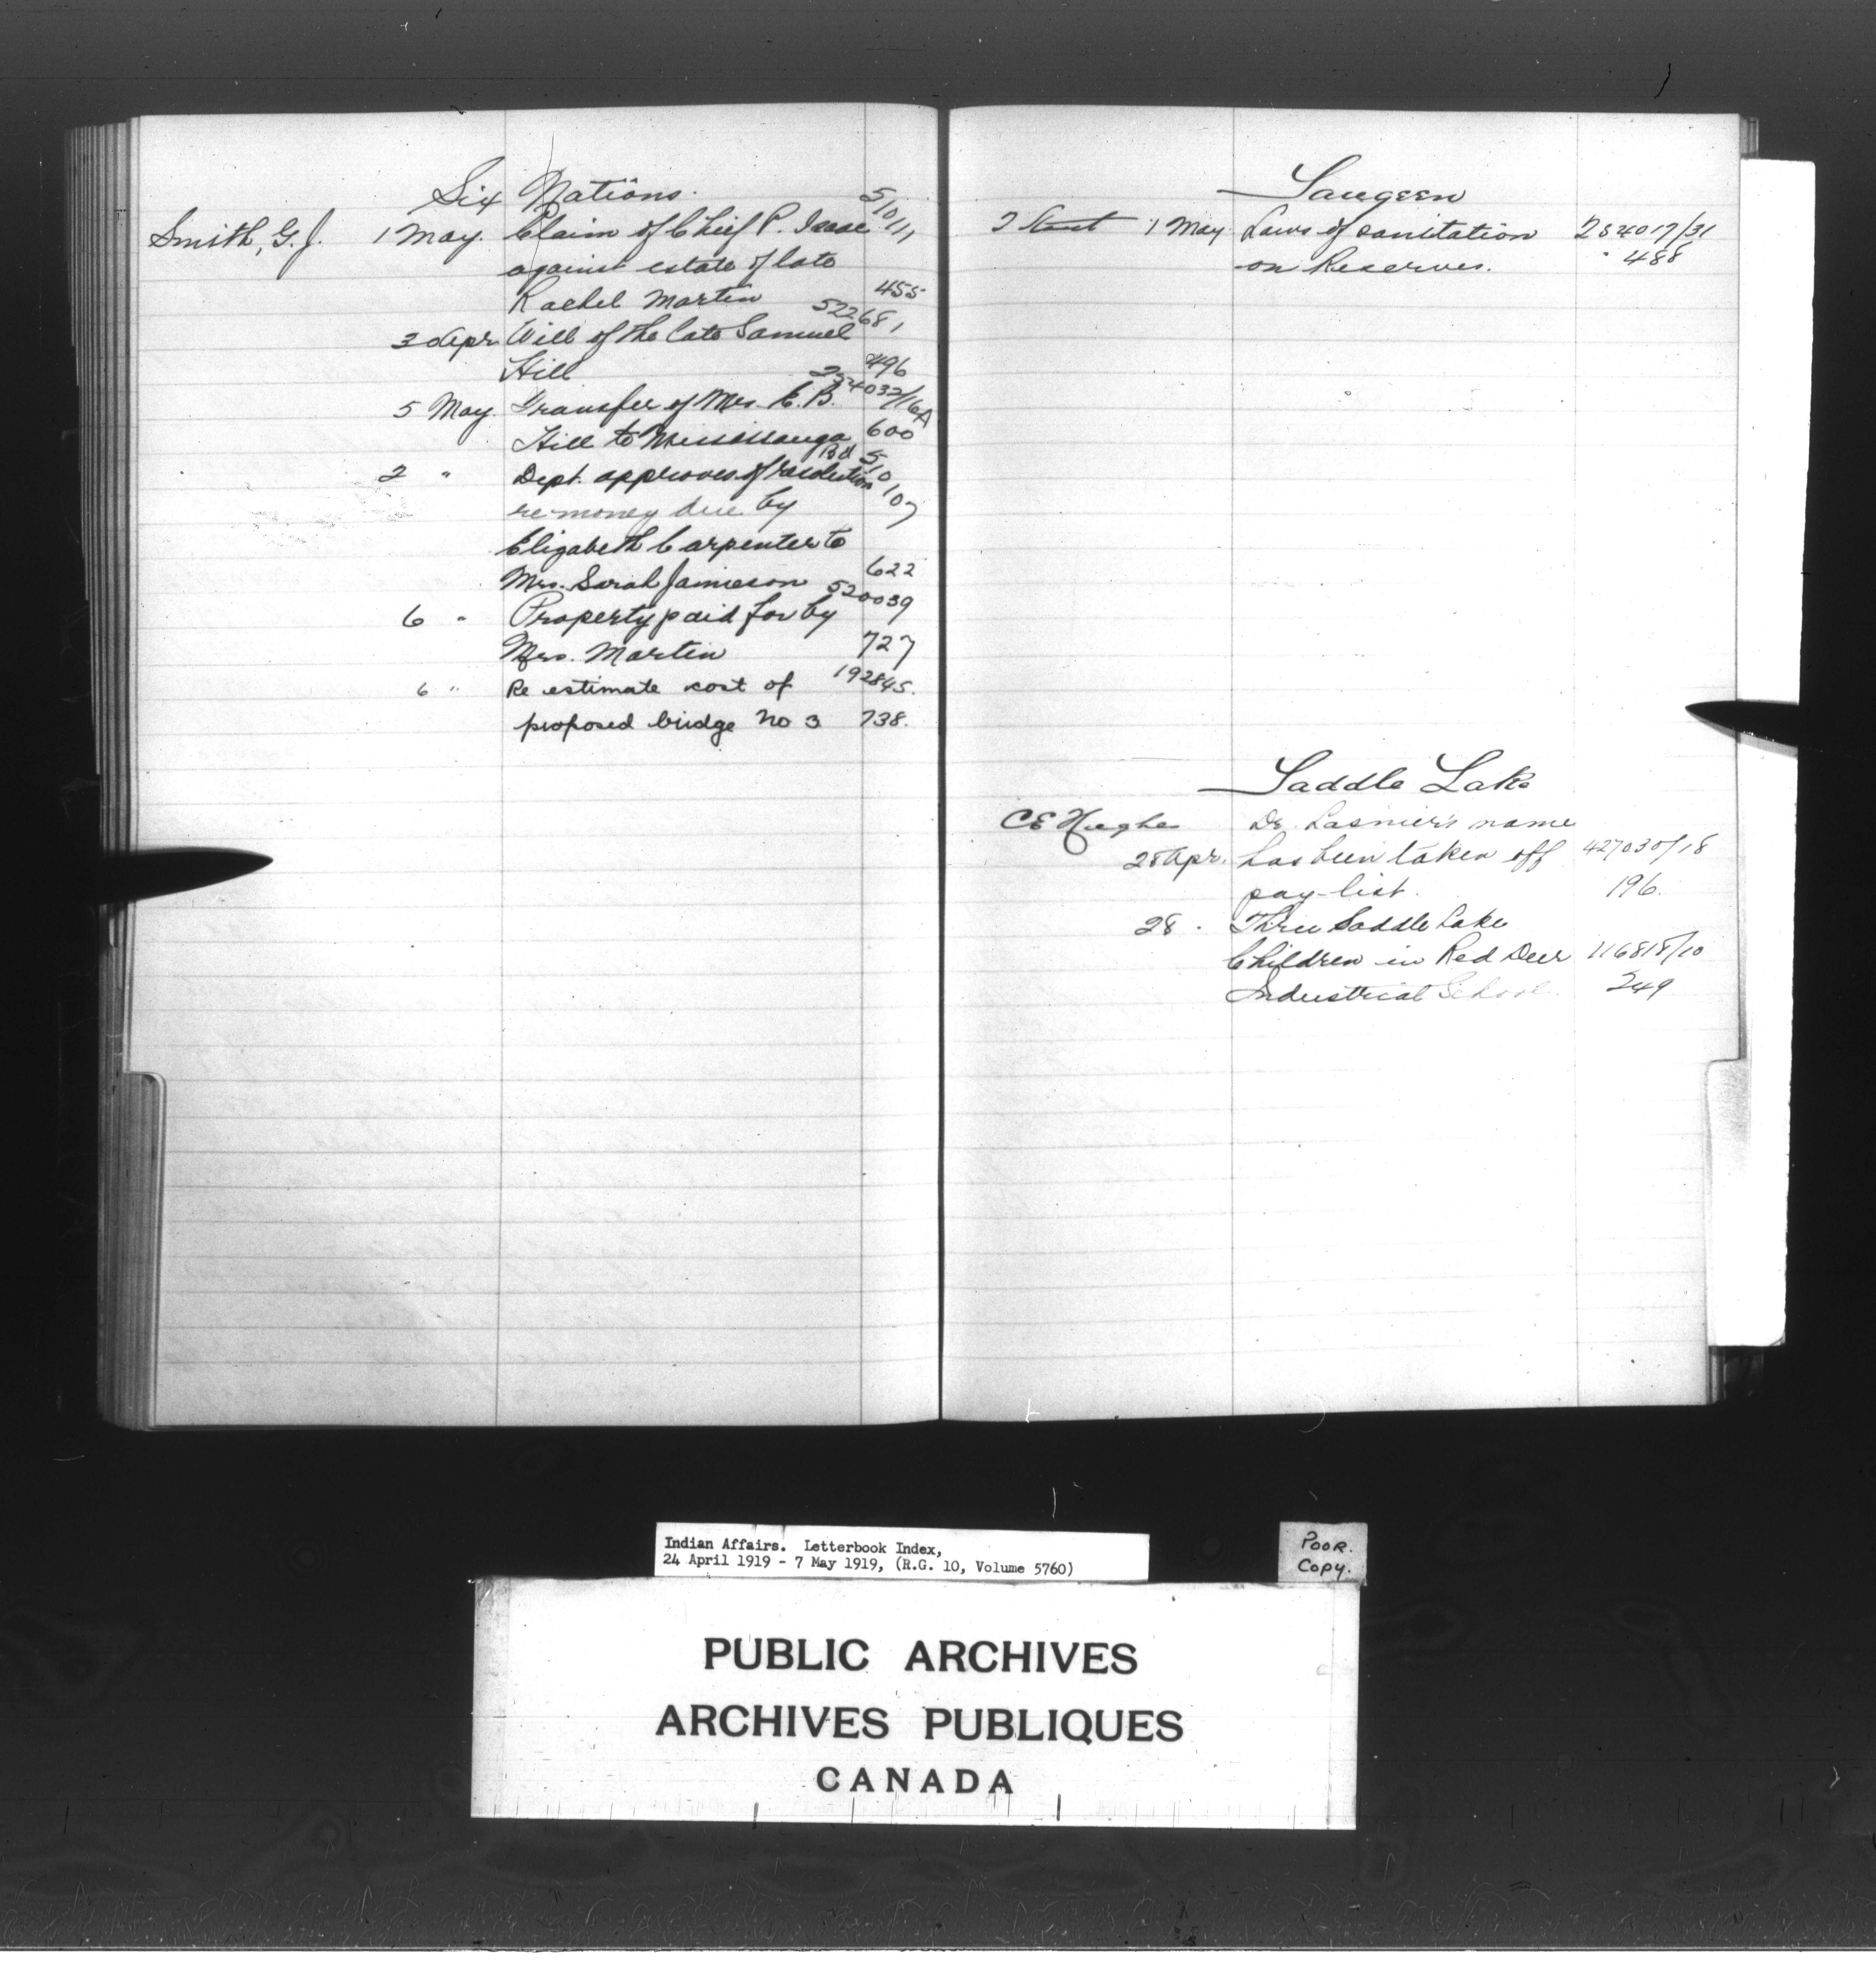 Six Nations.
Smith, G. J. 1 May. Claim of Chief P. Isaac 510111
against estate of late
Rachel Martin 455
30 Apr. Will of the late Samuel 522681
Hill 496
5 May. Transfer of Mrs. C. B. 254032/16A
Hill to Mississauga Bd 600
2 " Dept. approves of resolution 510107
re money due by
Elizabeth Carpenter to
Mrs. Sarah Jamieson 622
6 " Property paid for by 520039
Mrs. Martin 727
6 " Re estimate cost of 192845.
proposed bridge No 3 738.
Saugeen
1 May Laws of sanitation 254017/31
on Reserves. 488
Saddle Lake
CE Hughes Dr. Lasnier's name
28 Apr. has been taken off 427030/18
pay-list. 196.
28 . Three Saddle Lake
Children in Red Deer 116818/10
Industrial School. 249
Indian Affairs. Letterbook Index,
24 April 1919 - 7 May 1919, (R.G. 10, Volume 5760)
POOR.
COPY.
PUBLIC ARCHIVES
ARCHIVES PUBLIQUES
CANADA